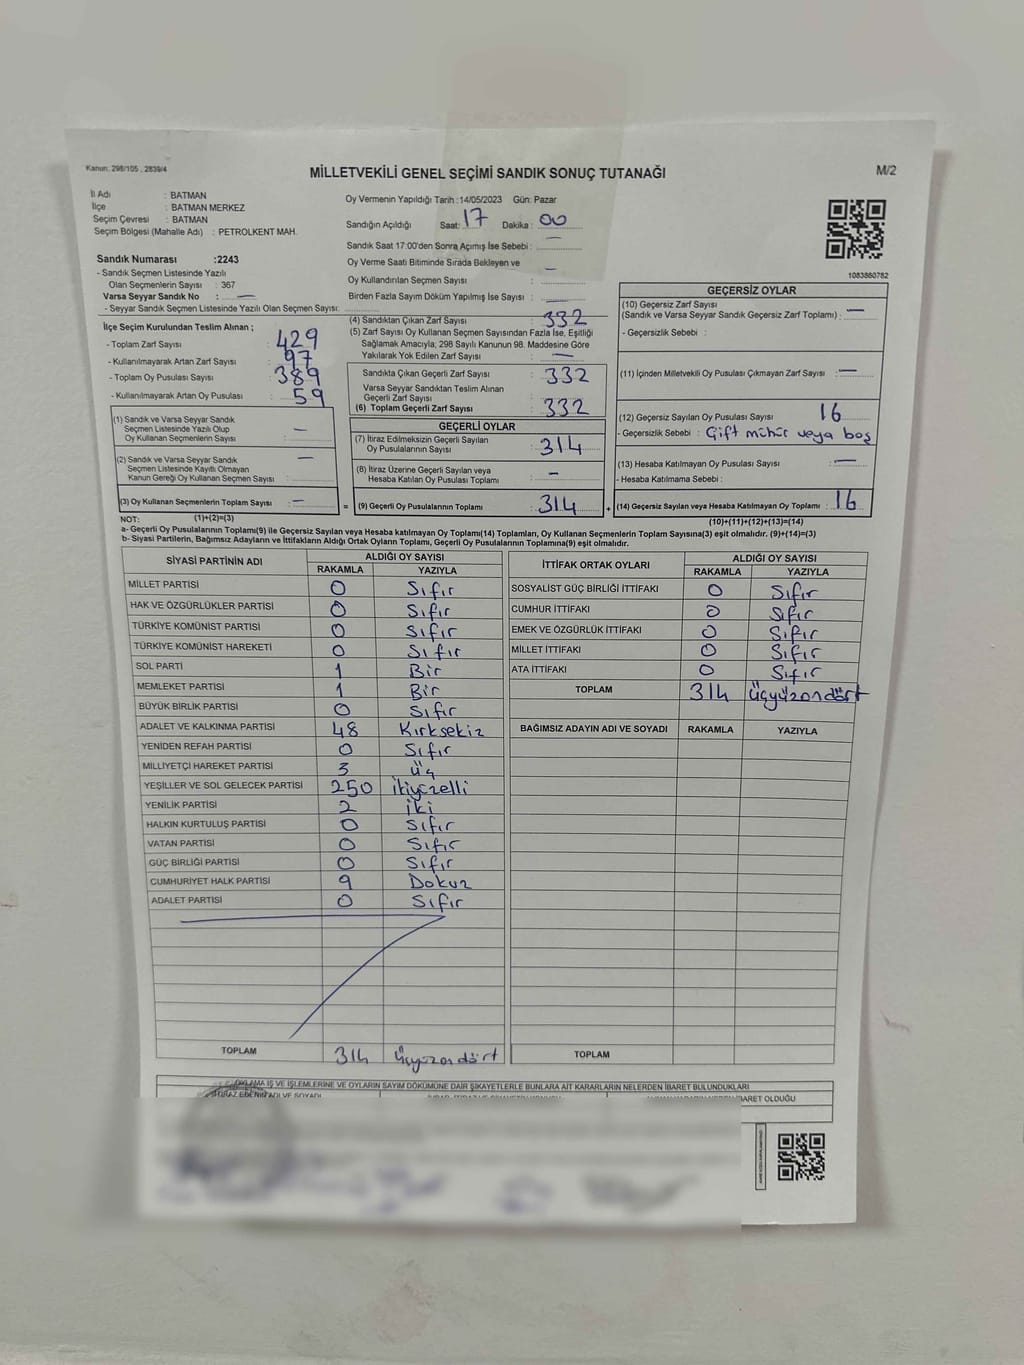 Kanun: 298/105 , 2839/4
MİLLETVEKİLİ GENEL SEÇİMİ SANDIK SONUÇ TUTANAĞI
M/2
İl Adı : BATMAN
İlçe : BATMAN MERKEZ
Seçim Çevresi : BATMAN
Seçim Bölgesi (Mahalle Adı) : PETROLKENT MAH.
Sandık Numarası :2243
- Sandık Seçmen Listesinde Yazılı
Olan Seçmenlerin Sayısı : 367
Varsa Seyyar Sandık No : —
- Seyyar Sandık Seçmen Listesinde Yazılı Olan Seçmen Sayısı:
Oy Vermenin Yapıldığı Tarih :14/05/2023 Gün: Pazar
Sandığın Açıldığı Saat: 17 Dakika : 00
Sandık Saat 17:00'den Sonra Açılmış İse Sebebi : —
Oy Verme Saati Bitiminde Sırada Bekleyen ve
Oy Kullandırılan Seçmen Sayısı : —
Birden Fazla Sayım Döküm Yapılmış İse Sayısı : —
1083860782
İlçe Seçim Kurulundan Teslim Alınan ;
- Toplam Zarf Sayısı : 429
- Kullanılmayarak Artan Zarf Sayısı : 97
- Toplam Oy Pusulası Sayısı : 389
- Kullanılmayarak Artan Oy Pusulası : 59
(1) Sandık ve Varsa Seyyar Sandık
Seçmen Listesinde Yazılı Olup
Oy Kullanan Seçmenlerin Sayısı : —
(2) Sandık ve Varsa Seyyar Sandık
Seçmen Listesinde Kayıtlı Olmayan
Kanun Gereği Oy Kullanan Seçmen Sayısı : —
(3) Oy Kullanan Seçmenlerin Toplam Sayısı : —
(4) Sandıktan Çıkan Zarf Sayısı : 332
(5) Zarf Sayısı Oy Kullanan Seçmen Sayısından Fazla İse, Eşitliği
Sağlamak Amacıyla, 298 Sayılı Kanunun 98. Maddesine Göre
Yakılarak Yok Edilen Zarf Sayısı : —
Sandıkta Çıkan Geçerli Zarf Sayısı : 332
Varsa Seyyar Sandıktan Teslim Alınan
Geçerli Zarf Sayısı :
(6) Toplam Geçerli Zarf Sayısı : 332
GEÇERLİ OYLAR
(7) İtiraz Edilmeksizin Geçerli Sayılan
Oy Pusulalarının Sayısı : 314
(8) İtiraz Üzerine Geçerli Sayılan veya
Hesaba Katılan Oy Pusulası Toplamı : —
= (9) Geçerli Oy Pusulalarının Toplamı : 314 +
GEÇERSİZ OYLAR
(10) Geçersiz Zarf Sayısı
(Sandık ve Varsa Seyyar Sandık Geçersiz Zarf Toplamı) : —
- Geçersizlik Sebebi :
(11) İçinden Milletvekili Oy Pusulası Çıkmayan Zarf Sayısı : —
(12) Geçersiz Sayılan Oy Pusulası Sayısı : 16
- Geçersizlik Sebebi : Çift mühür veya boş
(13) Hesaba Katılmayan Oy Pusulası Sayısı : —
- Hesaba Katılmama Sebebi :
(14) Geçersiz Sayılan veya Hesaba Katılmayan Oy Toplamı : 16
NOT: (1)+(2)=(3)
(10)+(11)+(12)+(13)=(14)
a- Geçerli Oy Pusulalarının Toplamı(9) ile Geçersiz Sayılan veya Hesaba katılmayan Oy Toplamı(14) Toplamları, Oy Kullanan Seçmenlerin Toplam Sayısına(3) eşit olmalıdır. (9)+(14)=(3)
b- Siyasi Partilerin, Bağımsız Adayların ve İttifakların Aldığı Ortak Oyların Toplamı, Geçerli Oy Pusulalarının Toplamına(9) eşit olmalıdır.
SİYASİ PARTİNİN ADI ALDIĞI OY SAYISI
RAKAMLA YAZIYLA
MİLLET PARTİSİ 0 Sıfır
HAK VE ÖZGÜRLÜKLER PARTİSİ 0 Sıfır
TÜRKİYE KOMÜNİST PARTİSİ 0 Sıfır
TÜRKİYE KOMÜNİST HAREKETİ 0 Sıfır
SOL PARTİ 1 Bir
MEMLEKET PARTİSİ 1 Bir
BÜYÜK BİRLİK PARTİSİ 0 Sıfır
ADALET VE KALKINMA PARTİSİ 48 Kırksekiz
YENİDEN REFAH PARTİSİ 0 Sıfır
MİLLİYETÇİ HAREKET PARTİSİ 3 üç
YEŞİLLER VE SOL GELECEK PARTİSİ 250 ikiyüzelli
YENİLİK PARTİSİ 2 iki
HALKIN KURTULUŞ PARTİSİ 0 Sıfır
VATAN PARTİSİ 0 Sıfır
GÜÇ BİRLİĞİ PARTİSİ 0 Sıfır
CUMHURİYET HALK PARTİSİ 9 Dokuz
ADALET PARTİSİ 0 Sıfır
TOPLAM 314 üçyüzondört
İTTİFAK ORTAK OYLARI ALDIĞI OY SAYISI
RAKAMLA YAZIYLA
SOSYALİST GÜÇ BİRLİĞİ İTTİFAKI 0 Sıfır
CUMHUR İTTİFAKI 0 Sıfır
EMEK VE ÖZGÜRLÜK İTTİFAKI 0 Sıfır
MİLLET İTTİFAKI 0 Sıfır
ATA İTTİFAKI 0 Sıfır
TOPLAM 314 üçyüzondört
BAĞIMSIZ ADAYIN ADI VE SOYADI RAKAMLA YAZIYLA
TOPLAM
OYLAMA İŞ VE İŞLEMLERİNE VE OYLARIN SAYIM DÖKÜMÜNE DAİR ŞİKAYETLERLE BUNLARA AİT KARARLARIN NELERDEN İBARET BULUNDUKLARI
İTİRAZ EDENİN ADI VE SOYADI
İBARET OLDUĞU